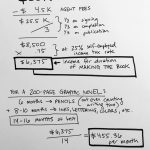 - $ 4.5K AGENT FEES
$ 25.5 K
3
1/3 on signing
1/3 on completion
1/3 on publication
$8,500
at 25% self-employed income tax rate
$6,375
= income for duration of MAKING THE BOOK
FOR A 200-PAGE GRAPHIC NOVEL:
6 months → PENCILS (not even counting writing time)
+ 8-10 months → INKS, LETTERING, COLORS, etc.
14-16 months of work
6,375
14
= $455.36 per month